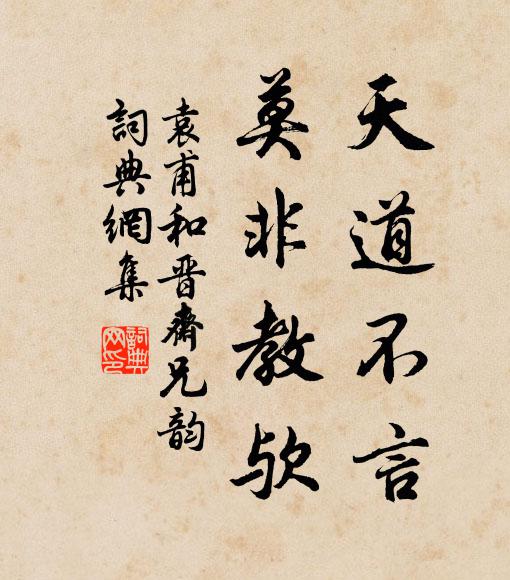 天道不言
莫非教欤
袁甫和晋齋兄韵
詞典網集
詞典网印